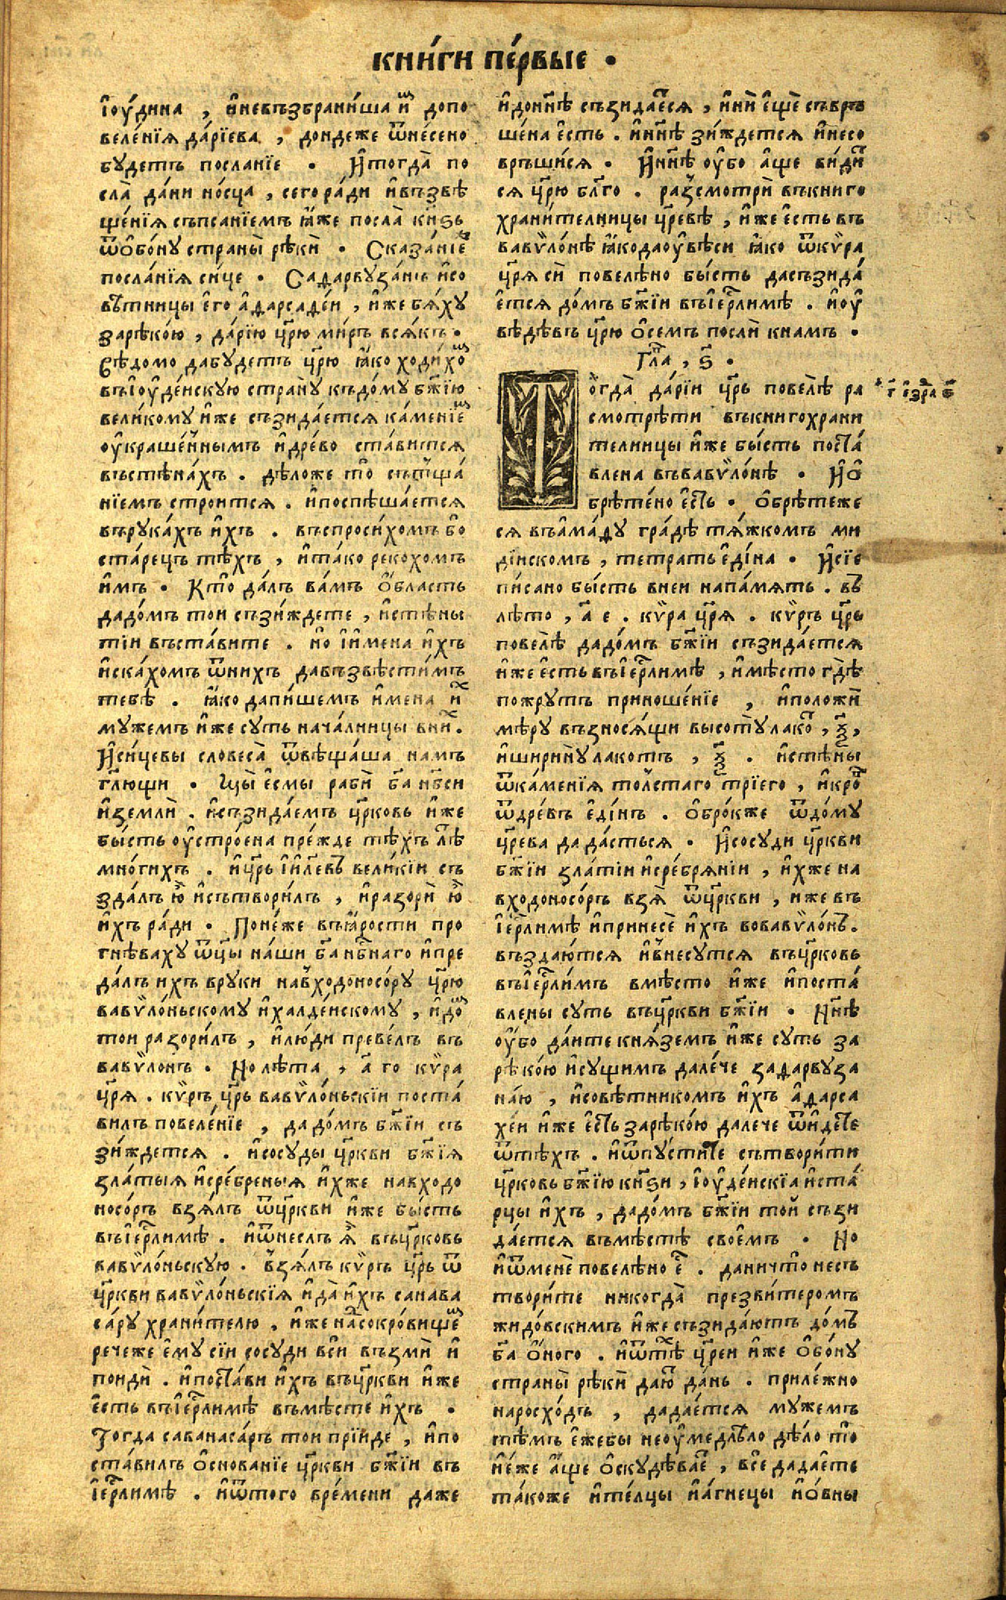 кни́ги пе́рвые ·
їоу́дина , и҆невъзбрани́ша и҆м допо
веле́нїѧ да́рїева , дондеже ѿне́сено
бꙋдетъ посланїе · И҆тогда̀ по
сла̀ да́ни но́сца , сего ра́ди и҆въ́звѣ
ще́нїѧ съписанїемъ ꙗ҆́же посла̀ кн҃ѕь
ѿѡ҆бонꙋ страны̀ рѣкѝ · Сказа́нїе
посла́нїѧ си́це · Садарвꙋза́нъ и҆со
вѣ́тницы е҆го а҆дарсаде́и , и҆́же бѧ́хꙋ
зарѣко́ю , да́рїю цр҃ю ми́ръ всѧ́къ ·
Вѣ́домо дабꙋдетъ цр҃ю ꙗ҆́ко ходи́хом
въїоуде́нскꙋю странꙋ̀ къдо́мꙋ бж҃їю
вели́комꙋ и҆́же съзида́етсѧ ка́менїем
оу҆краше́ннымъ и҆дре́во ста́витсѧ
въстѣна́хъ . дѣ́ложе то̀ сътща́
нїемъ строитсѧ . и҆поспѣша́етсѧ
върꙋка́хъ и҆́хъ . въспроси́хомъ бо
ста́рецъ тѣ́хъ , и҆та́ко рекохомъ
и҆́мъ · Кто̀ да́лъ ва́мъ ѡ҆́бласть
дадо́мъ тои съзи́ждете , и҆стѣ́ны
тїи въста́вите . но и҆и҆мена и҆́хъ
и҆ска́хомъ ѿни́хъ дабъзвѣсти́мъ
тебѣ̀ . ꙗ҆́ко дапи́шемъ и҆мена и҆х
мꙋжемъ и҆́же сꙋть нача́лницы вни́х .
И҆си́цевы словеса̀ ѿвѣща́ша на́мъ
гл҃ющи · Мы̀ е҆смы̀ рабѝ бг҃а нб҃си
и҆землѝ . и҆съзида́емъ цр҃ковь и҆́же
бы́сть оу҆стро́ена пре́жде тѣ́хъ лѣ́т
мно́гихъ . и҆цр҃ь і҆и҃левъ вели́кїи съ
зда́лъ ю҆̀ и҆сътвори́лъ , и҆разорѝ ю҆̀
и҆́хъ ра́ди · Поне́же въꙗ҆́рости про
гнѣваху ѿц҃ы на́ши бг҃а нб҃наго и҆пре
да́лъ и҆́хъ врꙋки навходоносо́рꙋ цр҃ю
вавѷло́ньскомꙋ и҆халде́нскомꙋ , и҆до́м
тои разори́лъ , и҆лю́ди преве́лъ въ
вавѷло́нъ . Но лѣ́та , а҃ го кѵ́ра
цр҃ѧ . кѵ́ръ цр҃ь вавѷло́ньскїи поста́
вилъ повеле́нїе , да до́мъ бж҃їи съ
зи́ждетсѧ . и҆сосꙋды цр҃кви бж҃їѧ
зла́тыѧ и҆сре́бреныѧ и҆́хже навходо
носо́ръ взѧ́лъ ѿцр҃кви и҆́же бы́сть
въіерⷭ҇лимѣ . и҆ѿнеслъ ѧ҆̀ въцр҃ковь
вавѷло́ньскꙋю . взѧ́лъ кѵ́ръ цр҃ь ѿ
цр҃кви вавѷло́ньскїѧ и҆да̀ и҆́хъ санава
са́рꙋ храни́телю , и҆́же насокро́вищем
речеже е҆мꙋ̀ сїи сосꙋди всѝ възмѝ и҆
поидѝ . и҆поста́ви и҆́хъ въцр҃кви и҆́же
е҆сть въіерⷭ҇лимѣ въмѣ́сте и҆́хъ ·
Тогда саванаса́ръ тои прїи́де , и҆по
ста́вилъ ѡ҆снованїе цр҃кви бж҃їи въ
іерⷭ҇лимѣ . и҆ѿтого вре́мени даже
и҆донн҃ѣ съзида́есѧ , и҆нѝ е҆щѐ съвръ
ше́на е҆́сть . и҆нн҃ѣ зи́ждетсѧ и҆несо
врьши́сѧ . И҆нн҃ѣ оу҆́бо а҆́ще ви́дит
сѧ цр҃ю бл҃го . разсмотрѝ въкниго
храни́телницы цр҃евѣ , и҆́же е҆сть въ
вавѷло́нѣ ꙗ҆́кодаоу҆вѣ́си ꙗ҆́ко ѿкѵ́ра
цр҃ѧ сѝ повелѣ́но бы́сть дасъзида́
е҆тсѧ до́мъ бж҃їи въіерⷭ҇лимѣ . и҆оу҆
вѣ́дѣвъ цр҃ю ѡ҆се́мъ послѝ кна́мъ ·
Гл҃а , ѕ҃ .
Тогда̀ да́рїи цр҃ь повелѣ̀ ра
смотрѣ́ти въкнигохрани
телницы и҆́же бы́сть поста́
влена въвавѷло́нѣ · И҆ѡ҆
брѣте́но е҆́сть . Ѡ҆брѣтеже
сѧ въа҆ма́дꙋ гра́дѣ тѧ́жкомъ ми
ді́нскомъ , тетра́ть е҆ди́на · И҆сїе
писано бы́сть внеи напа́мѧть . въ
лѣто , а҃ е . кѵ́ра цр҃ѧ . кѵ́ръ цр҃ь
повелѣ̀ дадо́мъ бж҃їи съзида́етсѧ
и҆́же е҆сть въіерⷭ҇лимѣ , и҆мѣ́сто гдѣ̀
пожрꙋтъ приноше́нїе , и҆положѝ
мѣ́рꙋ възносѧ́щи высотꙋ̀ лакот , ѯ҃ ,
и҆ширинꙋ̀ лакотъ , ѯ҃ . и҆стѣ́ны
ѿка́менїѧ то́лстаго трїего , и҆кром
ѿдре́въ е҆ди́нъ . Ѡ҆бро́кже ѿдо́мꙋ
цр҃ева да да́стьсѧ . И҆сосꙋди цр҃кви
бж҃їи зла́тїи и҆сребрѧнїи , и҆́хже на
входоносо́ръ взѧ̀ ѿцр҃кви , и҆же въ
іерⷭ҇лимѣ и҆принесѐ и҆́хъ вовавѷло́нъ .
въздаютсѧ и҆внесꙋтсѧ въцр҃ковь
въіерⷭ҇лимѣ вмѣ́сто и҆́же и҆поста́
влены сꙋть въцр҃кви бж҃їи · Нн҃ѣ
оу҆́бо да́ите кнѧ́земъ и҆́же сꙋть за
рѣко́ю и҆сꙋщимъ дале́че задарвꙋза
на́ю , и҆совѣ́тникомъ и҆́хъ а҆дарса
хе́и и҆́же е҆сть зарѣко́ю далече ѿидѣте
ѿтѣ́хъ . и҆ѿпꙋсти́те сътвори́ти
цр҃ковь бж҃їю кн҃ѕи , і҆оуде́нскїа и҆ста́
рцы и҆́хъ , дадо́мъ бж҃їи то́и съзи
да́етсѧ въмѣ́стѣ свое́мъ · Но
и҆ѿменѐ повелѣ́но е҆сть . даничто̀ несъ
твори́те никогда̀ презви́теромъ
жидо́вскимъ и҆́же съзида́ютъ до́мъ
бг҃а ѡ҆́ного . и҆ѿтѣх цр҃еи и҆́же ѡ҆бонꙋ
страны̀ рѣкѝ дают да́нь . приле́жно
наросхо́дъ , дада́етсѧ мꙋжемъ
тѣ́мъ е҆́жебы неоу҆ме́длѣло дѣ́ло то̀
не́же а҆́ще ѡ҆скꙋдѣ́вает , всѐ дадаете
та́коже и҆те́лцы и҆а҆́гнецы и҆ѻ҆́вны